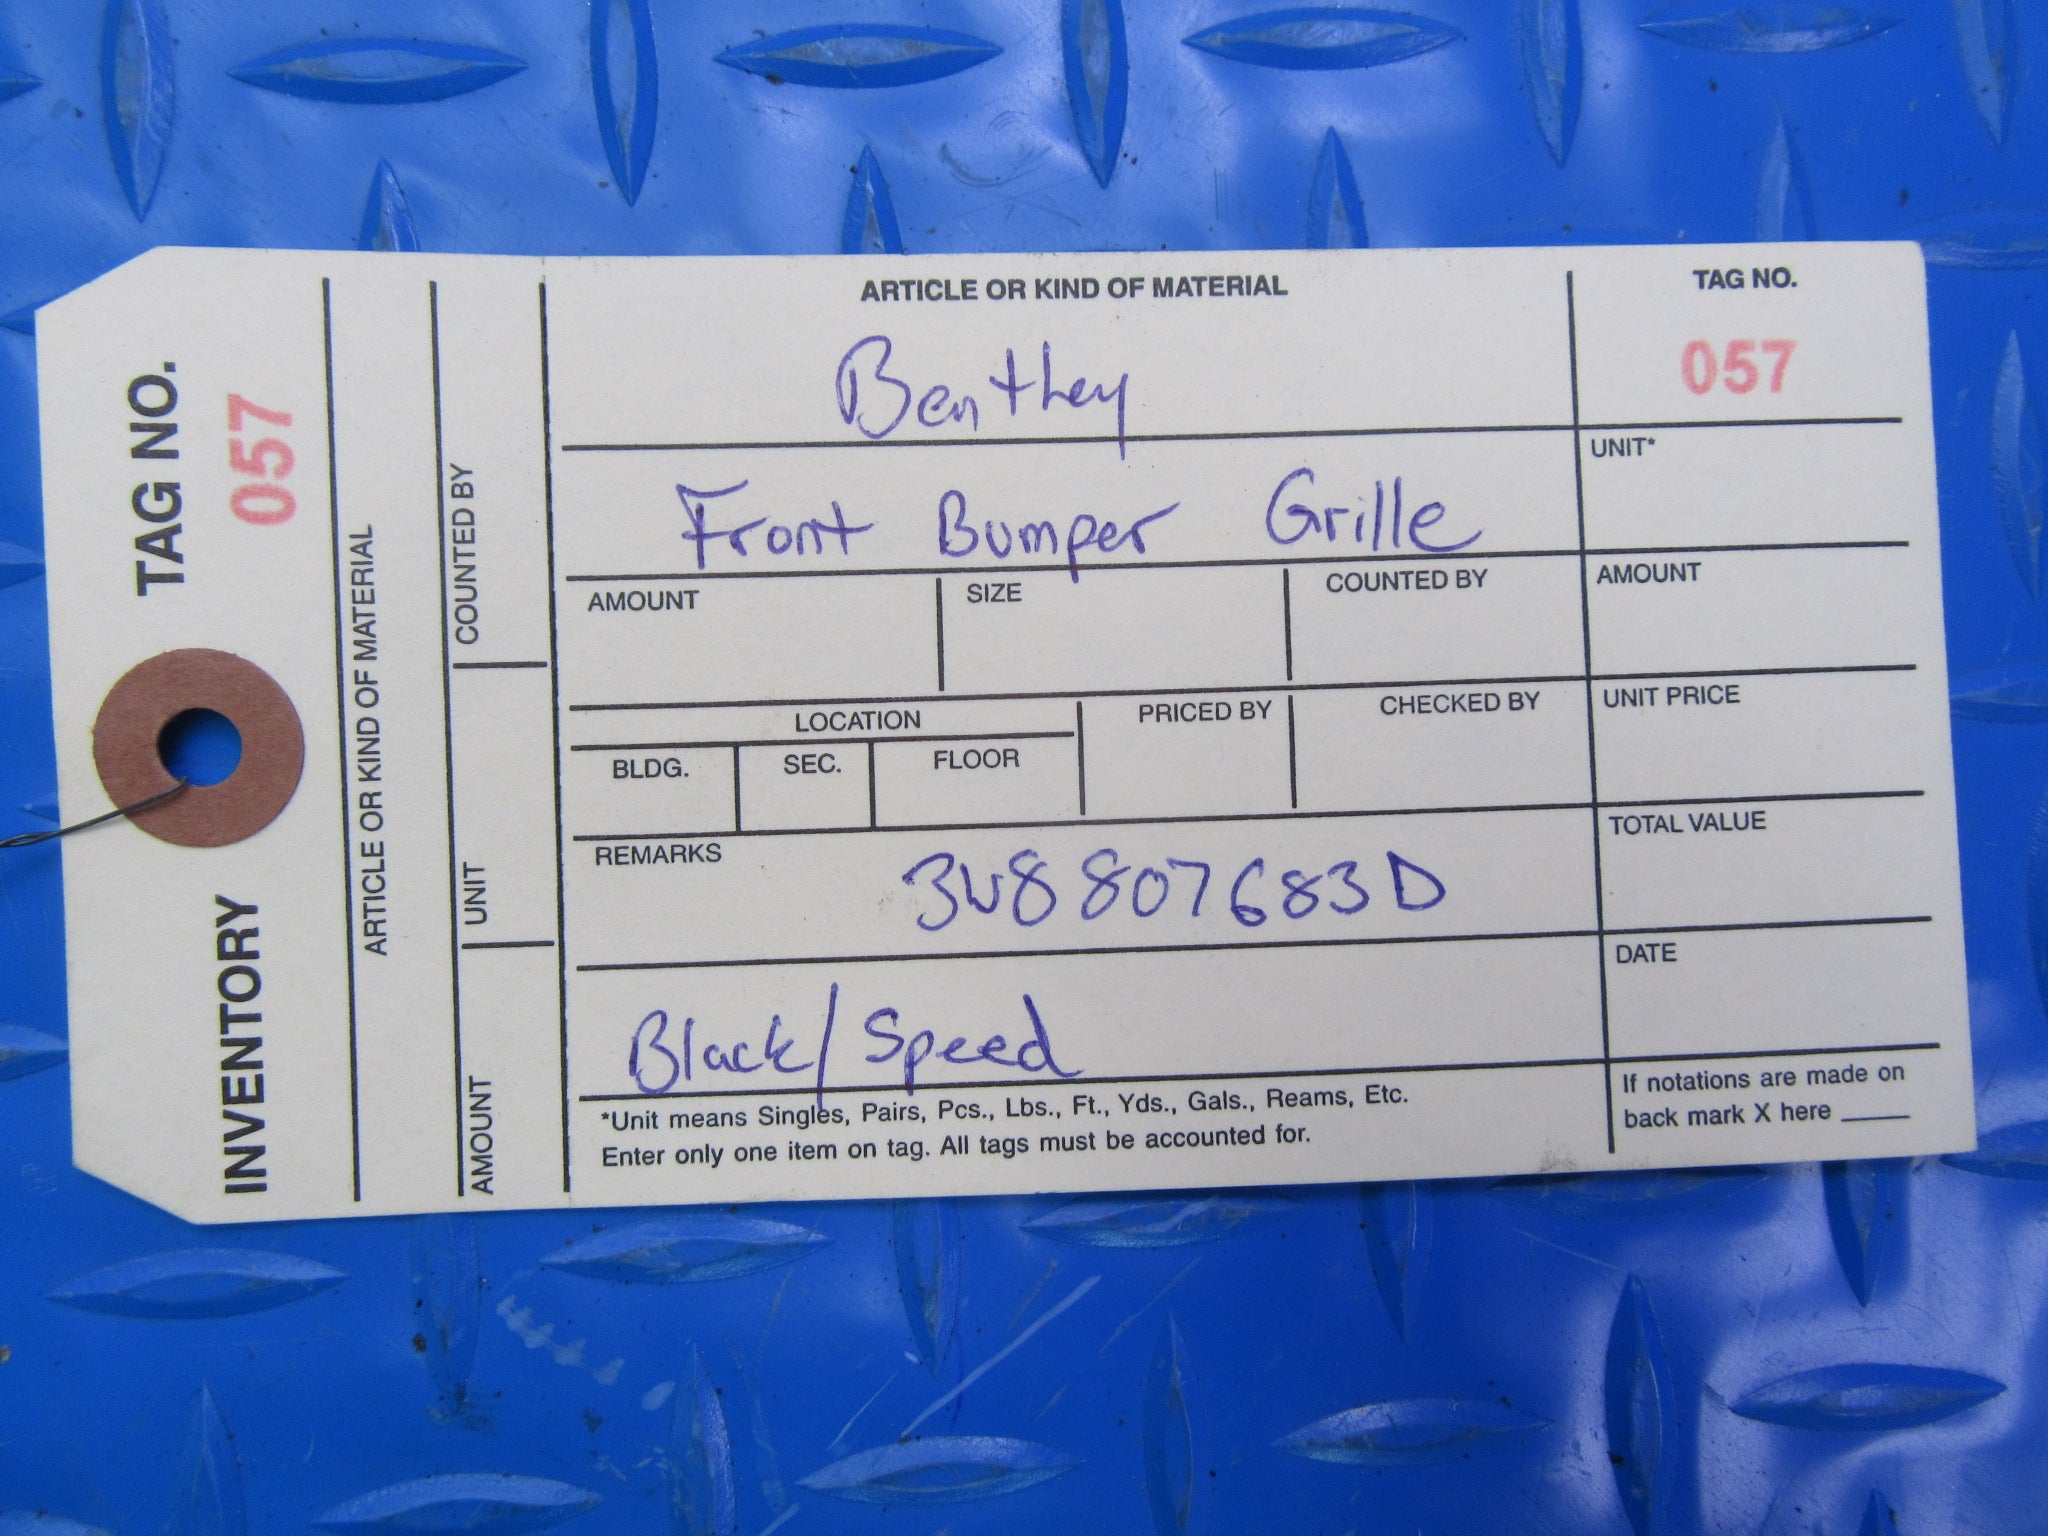 TAG NO.
057
INVENTORY
ARTICLE OR KIND OF MATERIAL
COUNTED BY
UNIT
AMOUNT
ARTICLE OR KIND OF MATERIAL
Benthey
Front Bumper Grille
AMOUNT
SIZE
COUNTED BY
LOCATION
BLDG.
SEC.
FLOOR
PRICED BY
CHECKED BY
REMARKS
3W8 807683D
Black/Speed
*Unit means Singles, Pairs, Pcs., Lbs., Ft., Yds., Gals., Reams, Etc.
Enter only one item on tag. All tags must be accounted for.
TAG NO.
057
UNIT*
AMOUNT
UNIT PRICE
TOTAL VALUE
DATE
If notations are made on
back mark X here _____